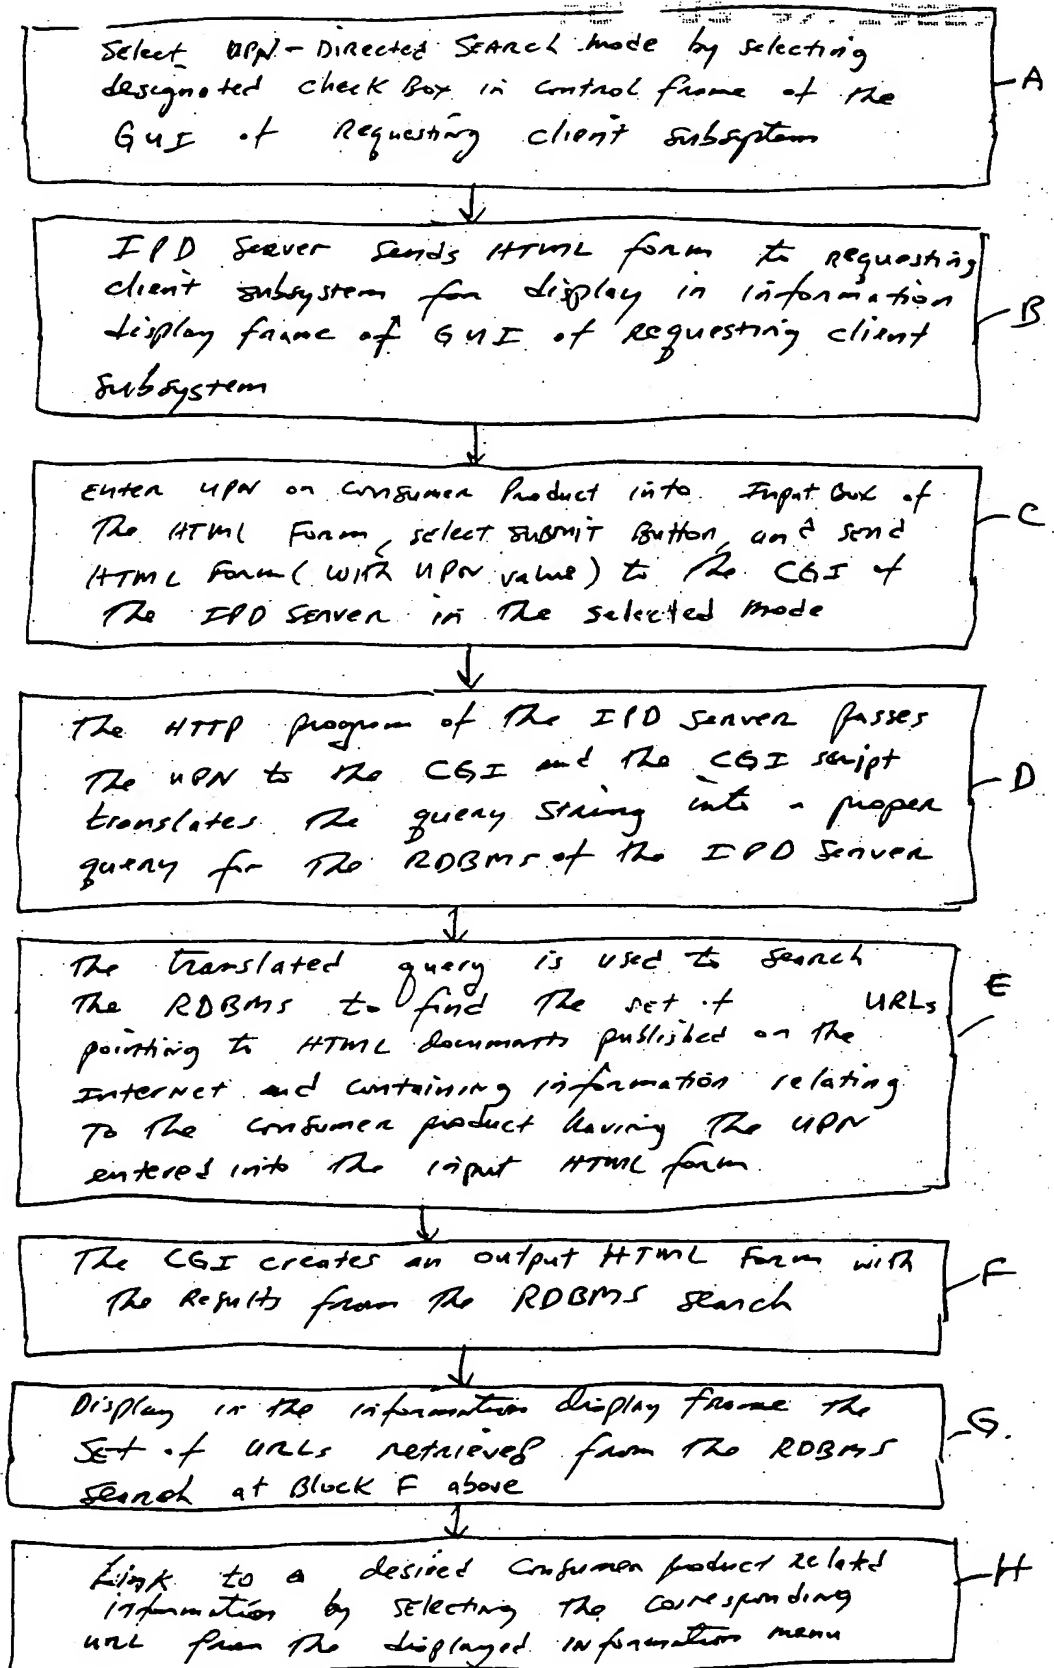 Select UPN-Directed SEARCH mode by selecting
designated check Box in control frame of the
GUI of Requesting client subsystem
A
IPD Server sends HTML form to requesting
client subsystem for display in information
display frame of GUI of requesting client
subsystem
B
Enter UPN on Consumer Product into Input Box of
The HTML Form, select SUBMIT Button, and send
HTML Form (with UPN value) to the CGI of
The IPD Server in the selected mode
C
The HTTP program of the IPD Server passes
The UPN to the CGI and the CGI script
translates the query string into a proper
query for the RDBMS of the IPD Server
D
The translated query is used to search
The RDBMS to find the set of URLs
pointing to HTML documents published on the
Internet and containing information relating
To the consumer product having the UPN
entered into the input HTML form.
E
The CGI creates an output HTML Form with
The Results from the RDBMS search
F
Display in the information display frame the
SET of URLs retrieved from the RDBMS
Search at Block F above
G.
Link to a desired Consumer product related
information by selecting the corresponding
URL from the displayed information menu
H